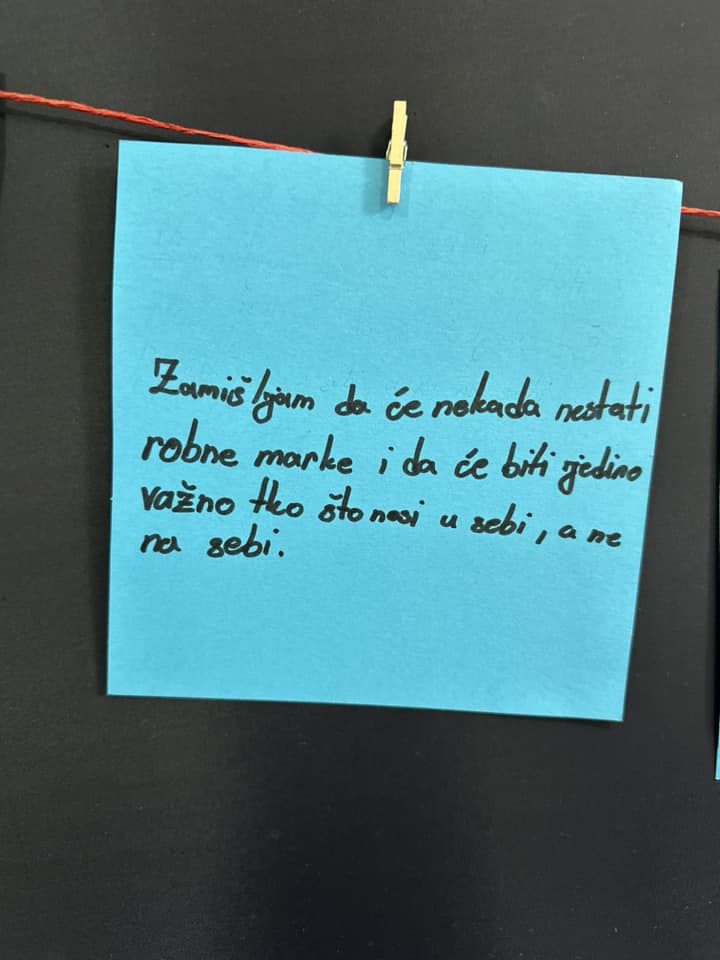 Zamišljam da će nekada nestati
robne marke i da će biti jedino
važno tko što nosi u sebi, a ne
na sebi.